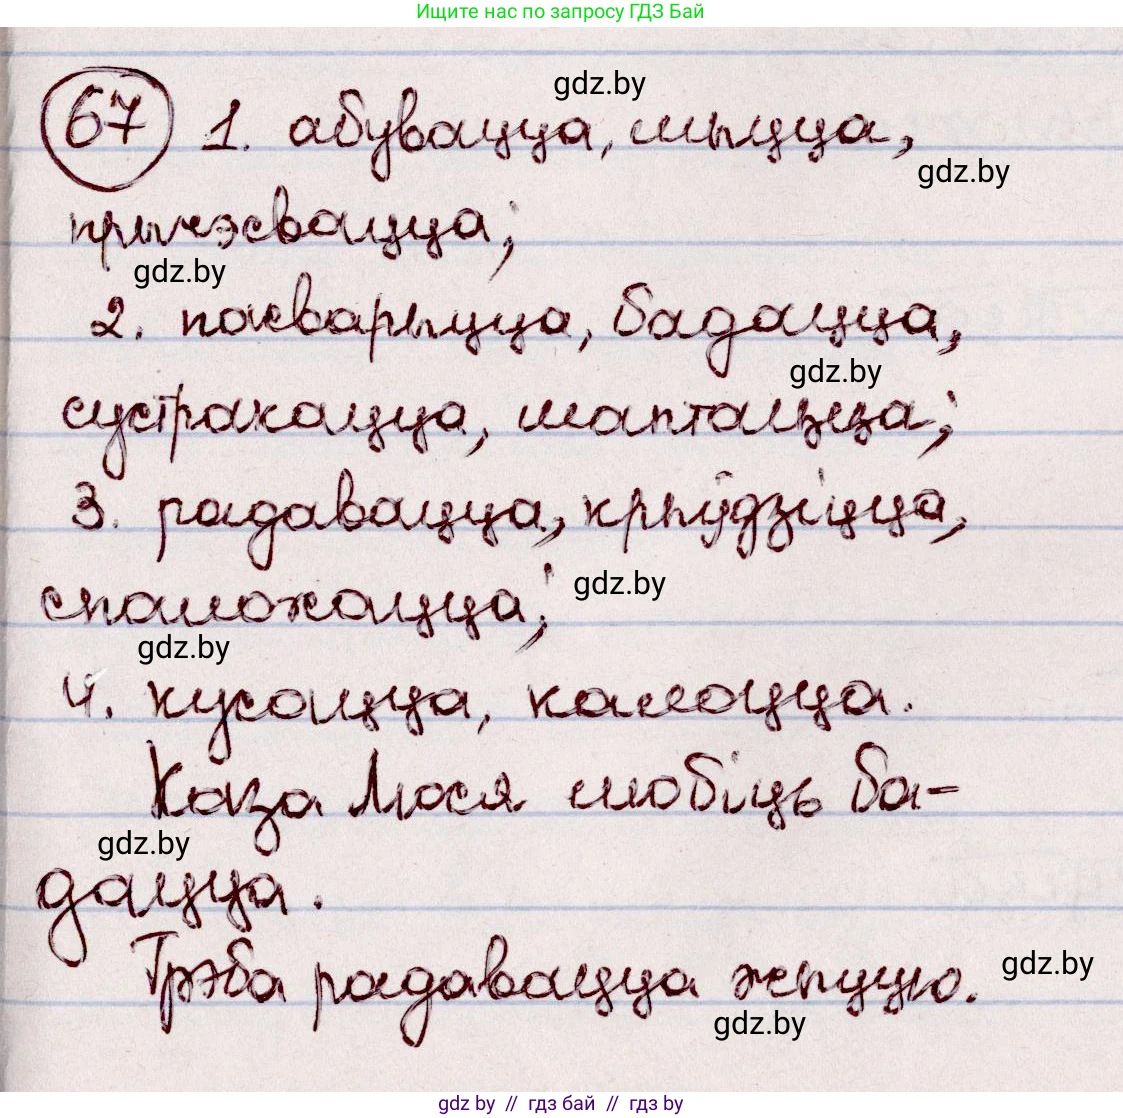 Ищите нас по запросу ГДЗ Бай
gdz.by
67 1. абувацца, мыцца,
gdz.by
прычэсвацца;
gdz.by
2. пасварыцца, бадацца,
gdz.by
сустракацца, шаптацца;
3. радавацца, крыўдзіцца,
gdz.by
спалохацца;
gdz.by
4. кусацца, калоцца.
Каза Люся любіць ба-
gdz.by
дацца.
Трэба радавацца жыццю.
gdz.by
gdz.by
gdz by // гдз бай // гдз by